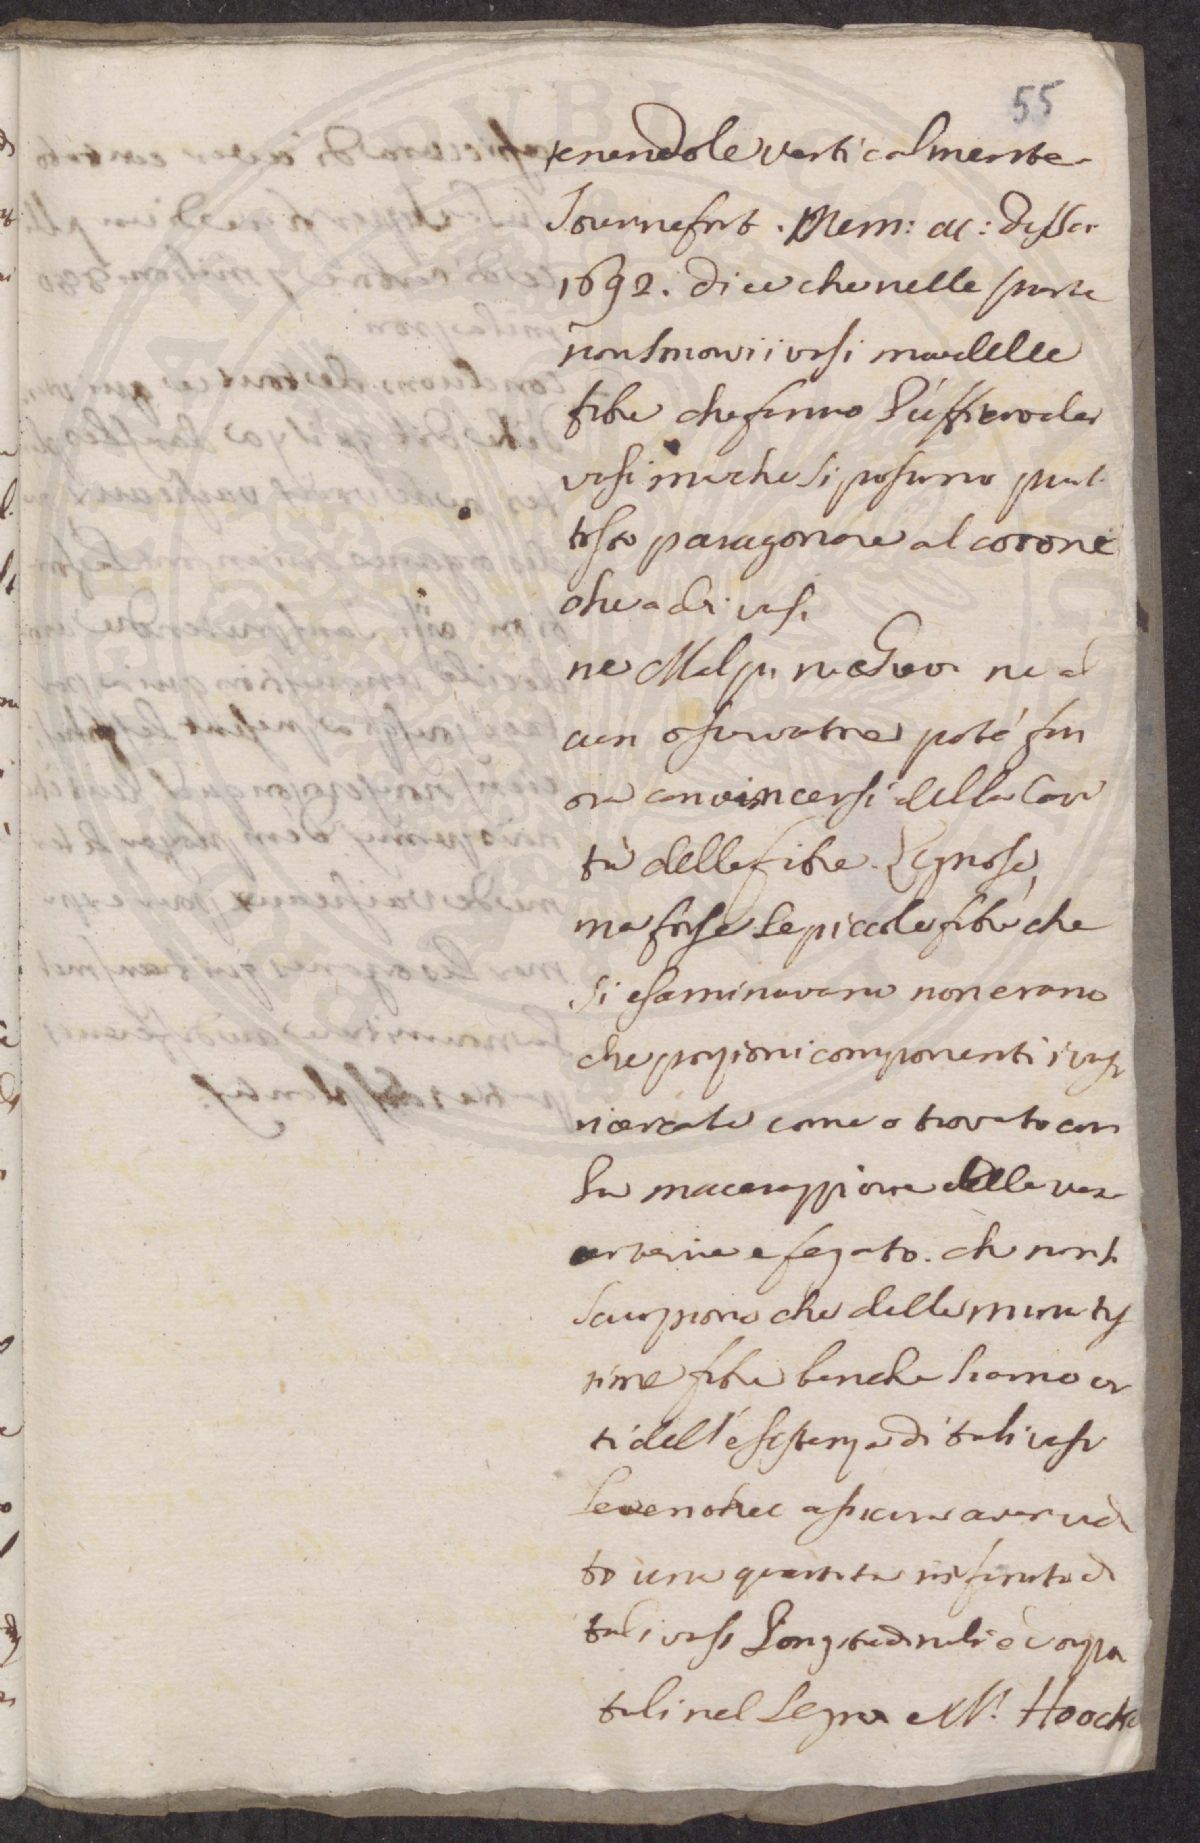 55
tenendole verticalmente
Tournefort. Mem: ac: desser
1692. dice che nelle piante
non sono vi i vasi ma delle
fibre che fanno l'ufficio de
vasi ma che si posono piut
tosto paragonare al cotone
che a di vasi
ne Malpi. ne Grew ne al
cun osservatore poté fin
ora convincersi della cavi
tà delle fibre Legnose,
ma forse le piccole fibre che
si esaminavano non erano
che porzioni componenti i vasi
ricercati come o trovato con
la macerazzione delle
arterie e fegato. che non si
scorgono che delle minutis
sime fibre benche siamo cer
ti dell'esistenza di tali vasi
Levenohec asicura aver vedu
to una quantità infinita di
tali vasi Longitudinali è
tali nel Legno e Mr. Hoock